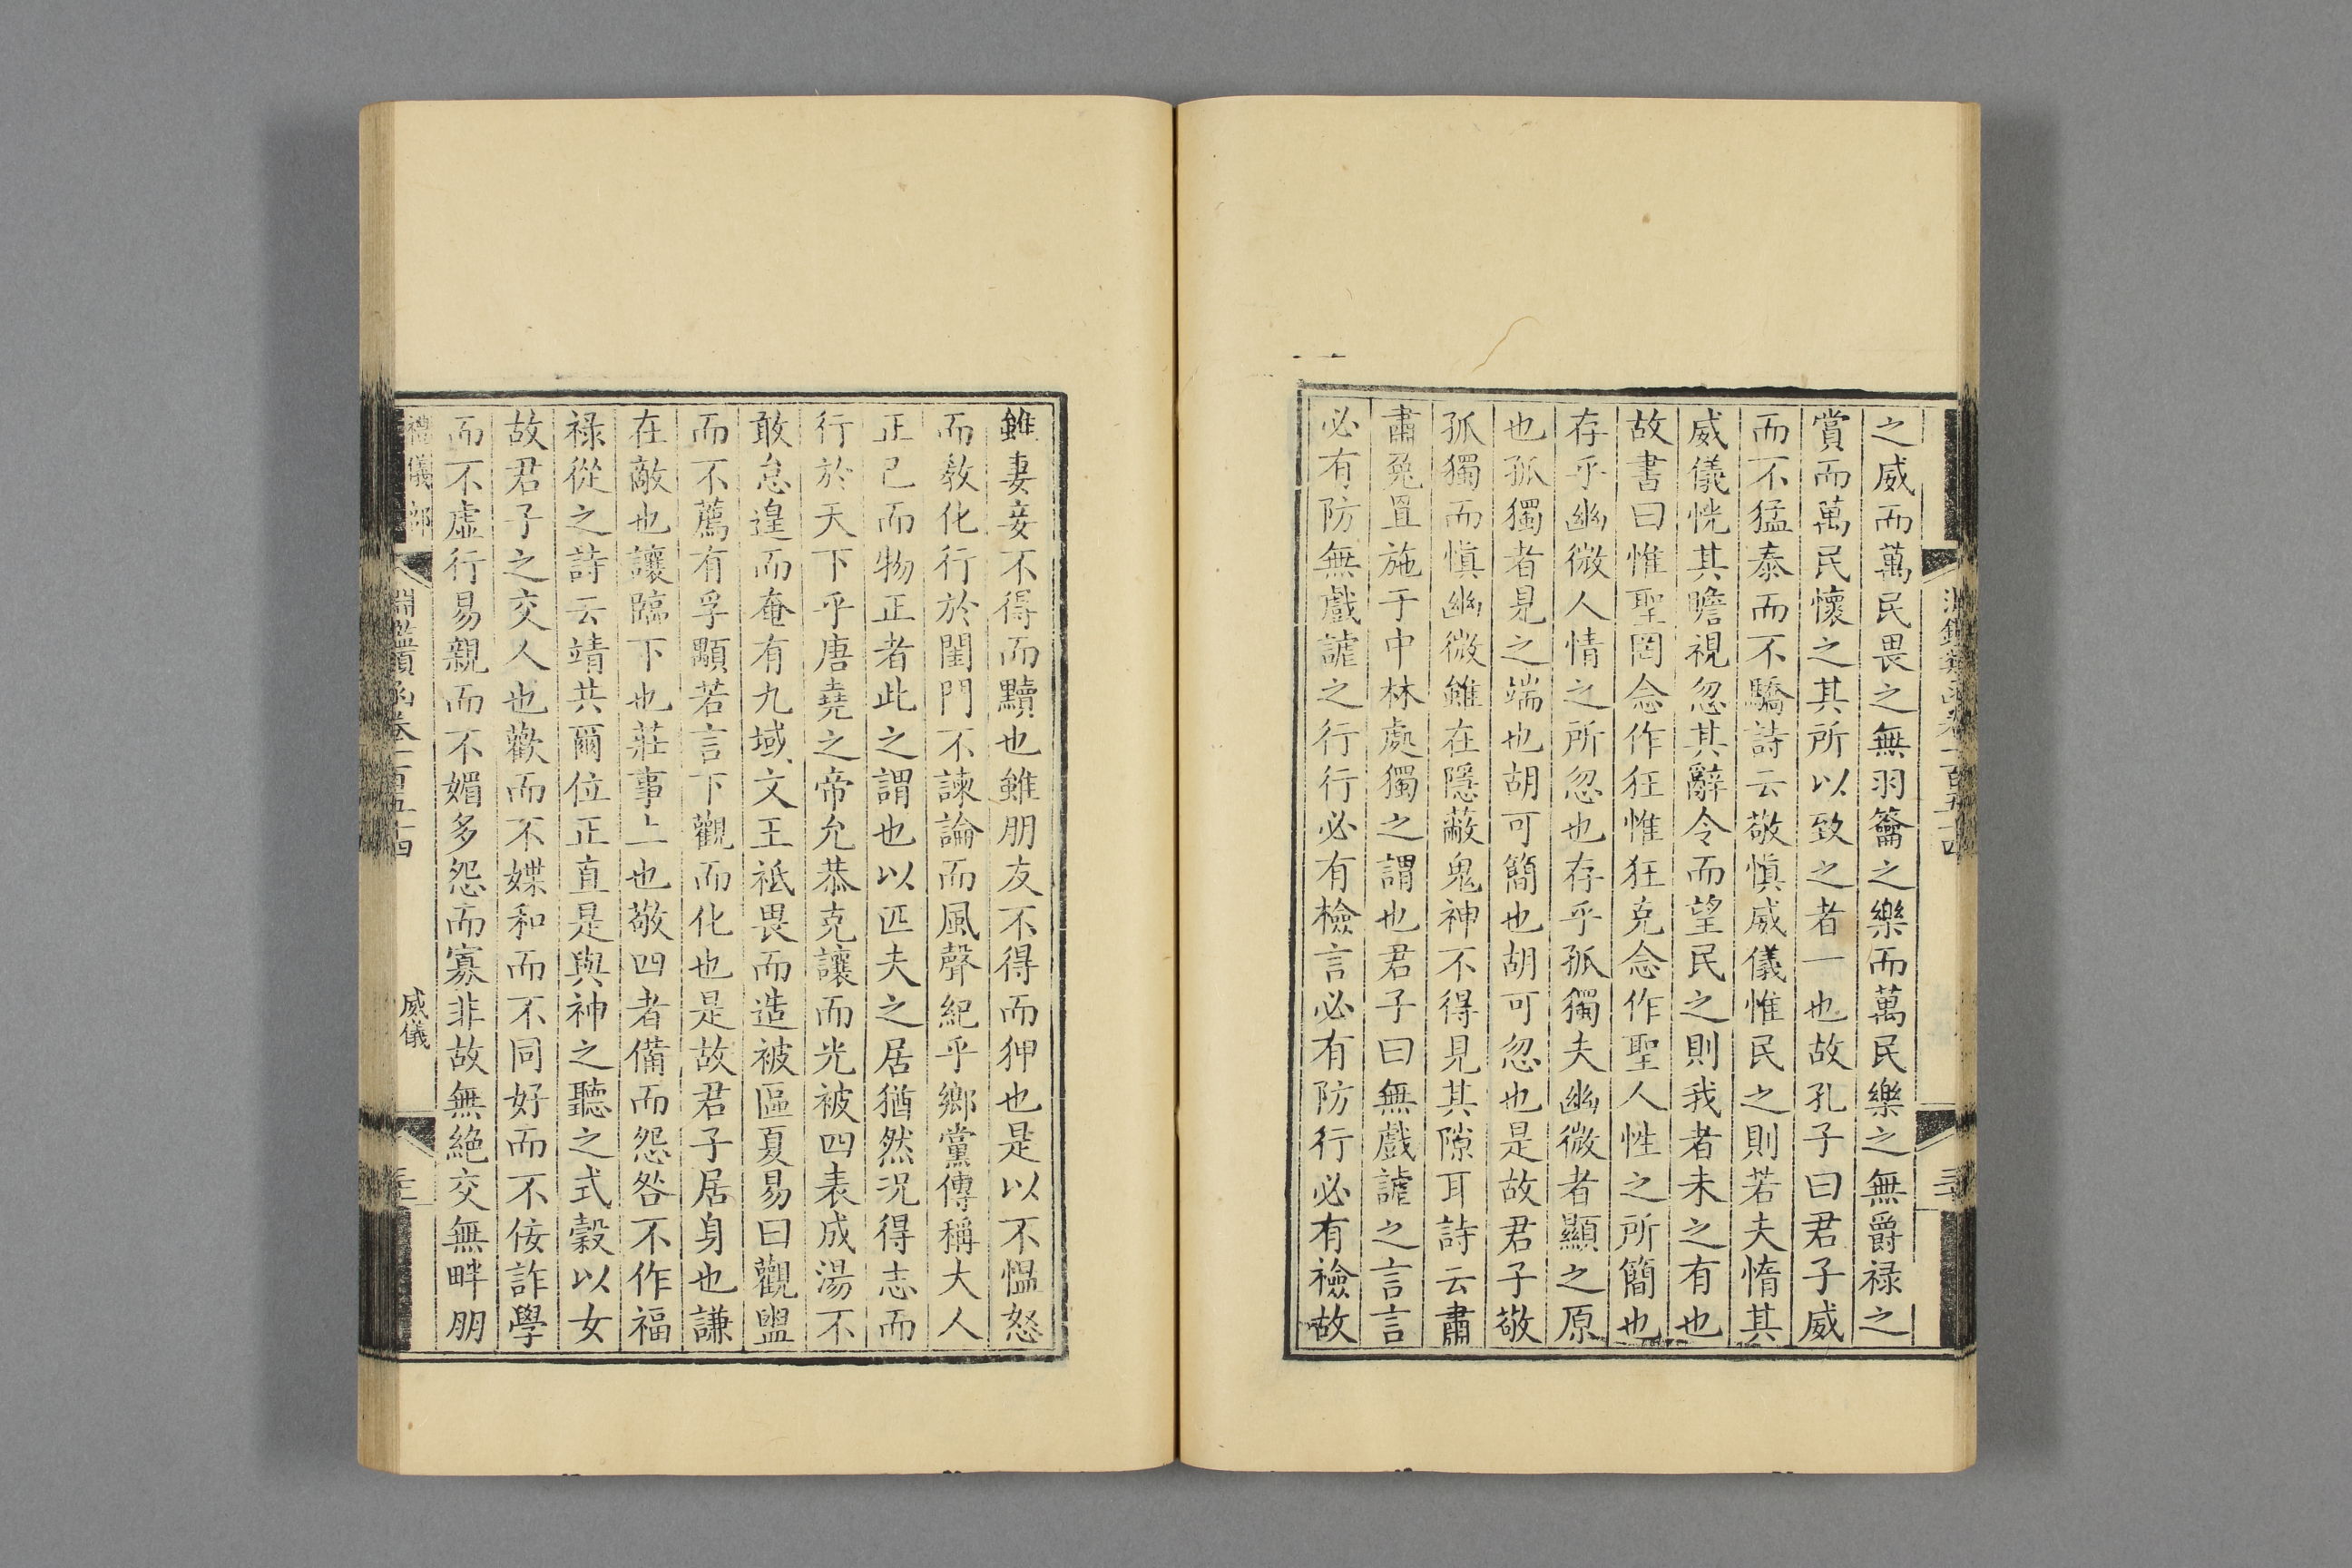 之威而萬民畏之無羽籥之樂而萬民樂之無爵祿之
賞而萬民懷之其所以致之者一也故孔子曰君子威
而不猛泰而不驕詩云敬慎威儀惟民之則若夫惰其
威儀恍其瞻視忽其辭令而望民之則我者未之有也
故書曰惟聖罔念作狂惟狂克念作聖人性之所簡也
存乎幽微人情之所忽也存乎孤獨夫幽微者顯之原
也孤獨者見之端也胡可簡也胡可忽也是故君子敬
孤獨而慎幽微雖在隱蔽鬼神不得見其隙耳詩云肅
肅兔罝施于中林處獨之謂也君子曰無戲謔之言言
必有防無戲謔之行行必有檢言必有防行必有檢故
雖妻妾不得而黷也雖朋友不得而狎也是以不慍怒
而教化行於閨門不諫論而風聲紀乎鄉黨傳稱大人
正己而物正者此之謂也以匹夫之居猶然況得志而
行於天下乎唐堯之帝允恭克讓而光被四表成湯不
敢怠遑而奄有九域文王祗畏而造被區夏易曰觀盥
而不薦有孚顒若言下觀而化也是故君子居身也謙
在敵也讓臨下也莊事上也敬四者備而怨咎不作福
祿從之詩云靖共爾位正直是與神之聽之式穀以女
故君子之交人也歡而不媟和而不同好而不佞詐學
而不虛行易親而不媚多怨而寡非故無絕交無畔朋
禮儀部
淵鑑類函卷一百五十四
威儀